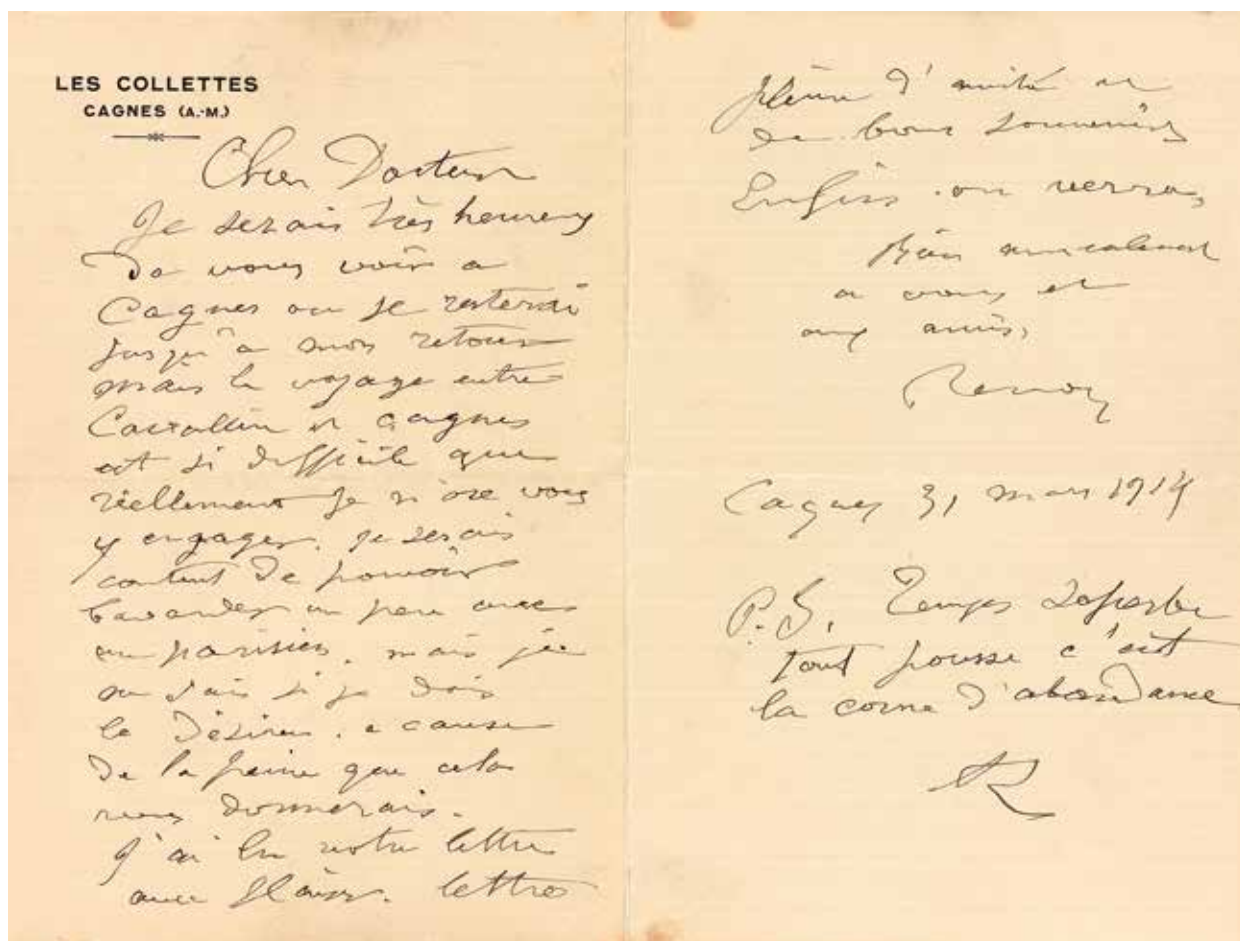 LES COLLETTES
CAGNES (A.-M.)
Cher Docteur
Je serais très heureux
de vous voir a
Cagnes ou je resterai
jusqu'a mon retour
mais le voyage entre
Cavallin et Cagnes
est si difficile que
réellement je n'ose vous
y engager. je serais
content de pouvoir
bavarder un peu avec
un parisien. mais je
ne sais si je dois
le désirer. a cause
de la peine que cela
vous donnerais.
J'ai lu votre lettre
avec plaisir. lettre
pleine d'amitié et
de bons souvenirs
Enfin on verra,
Bien amicalement
a vous et
aux amis,
Renoir
Cagnes 31 mars 1914
P.S. Temps superbe
tout pousse c'est
la corne d'abondance
R